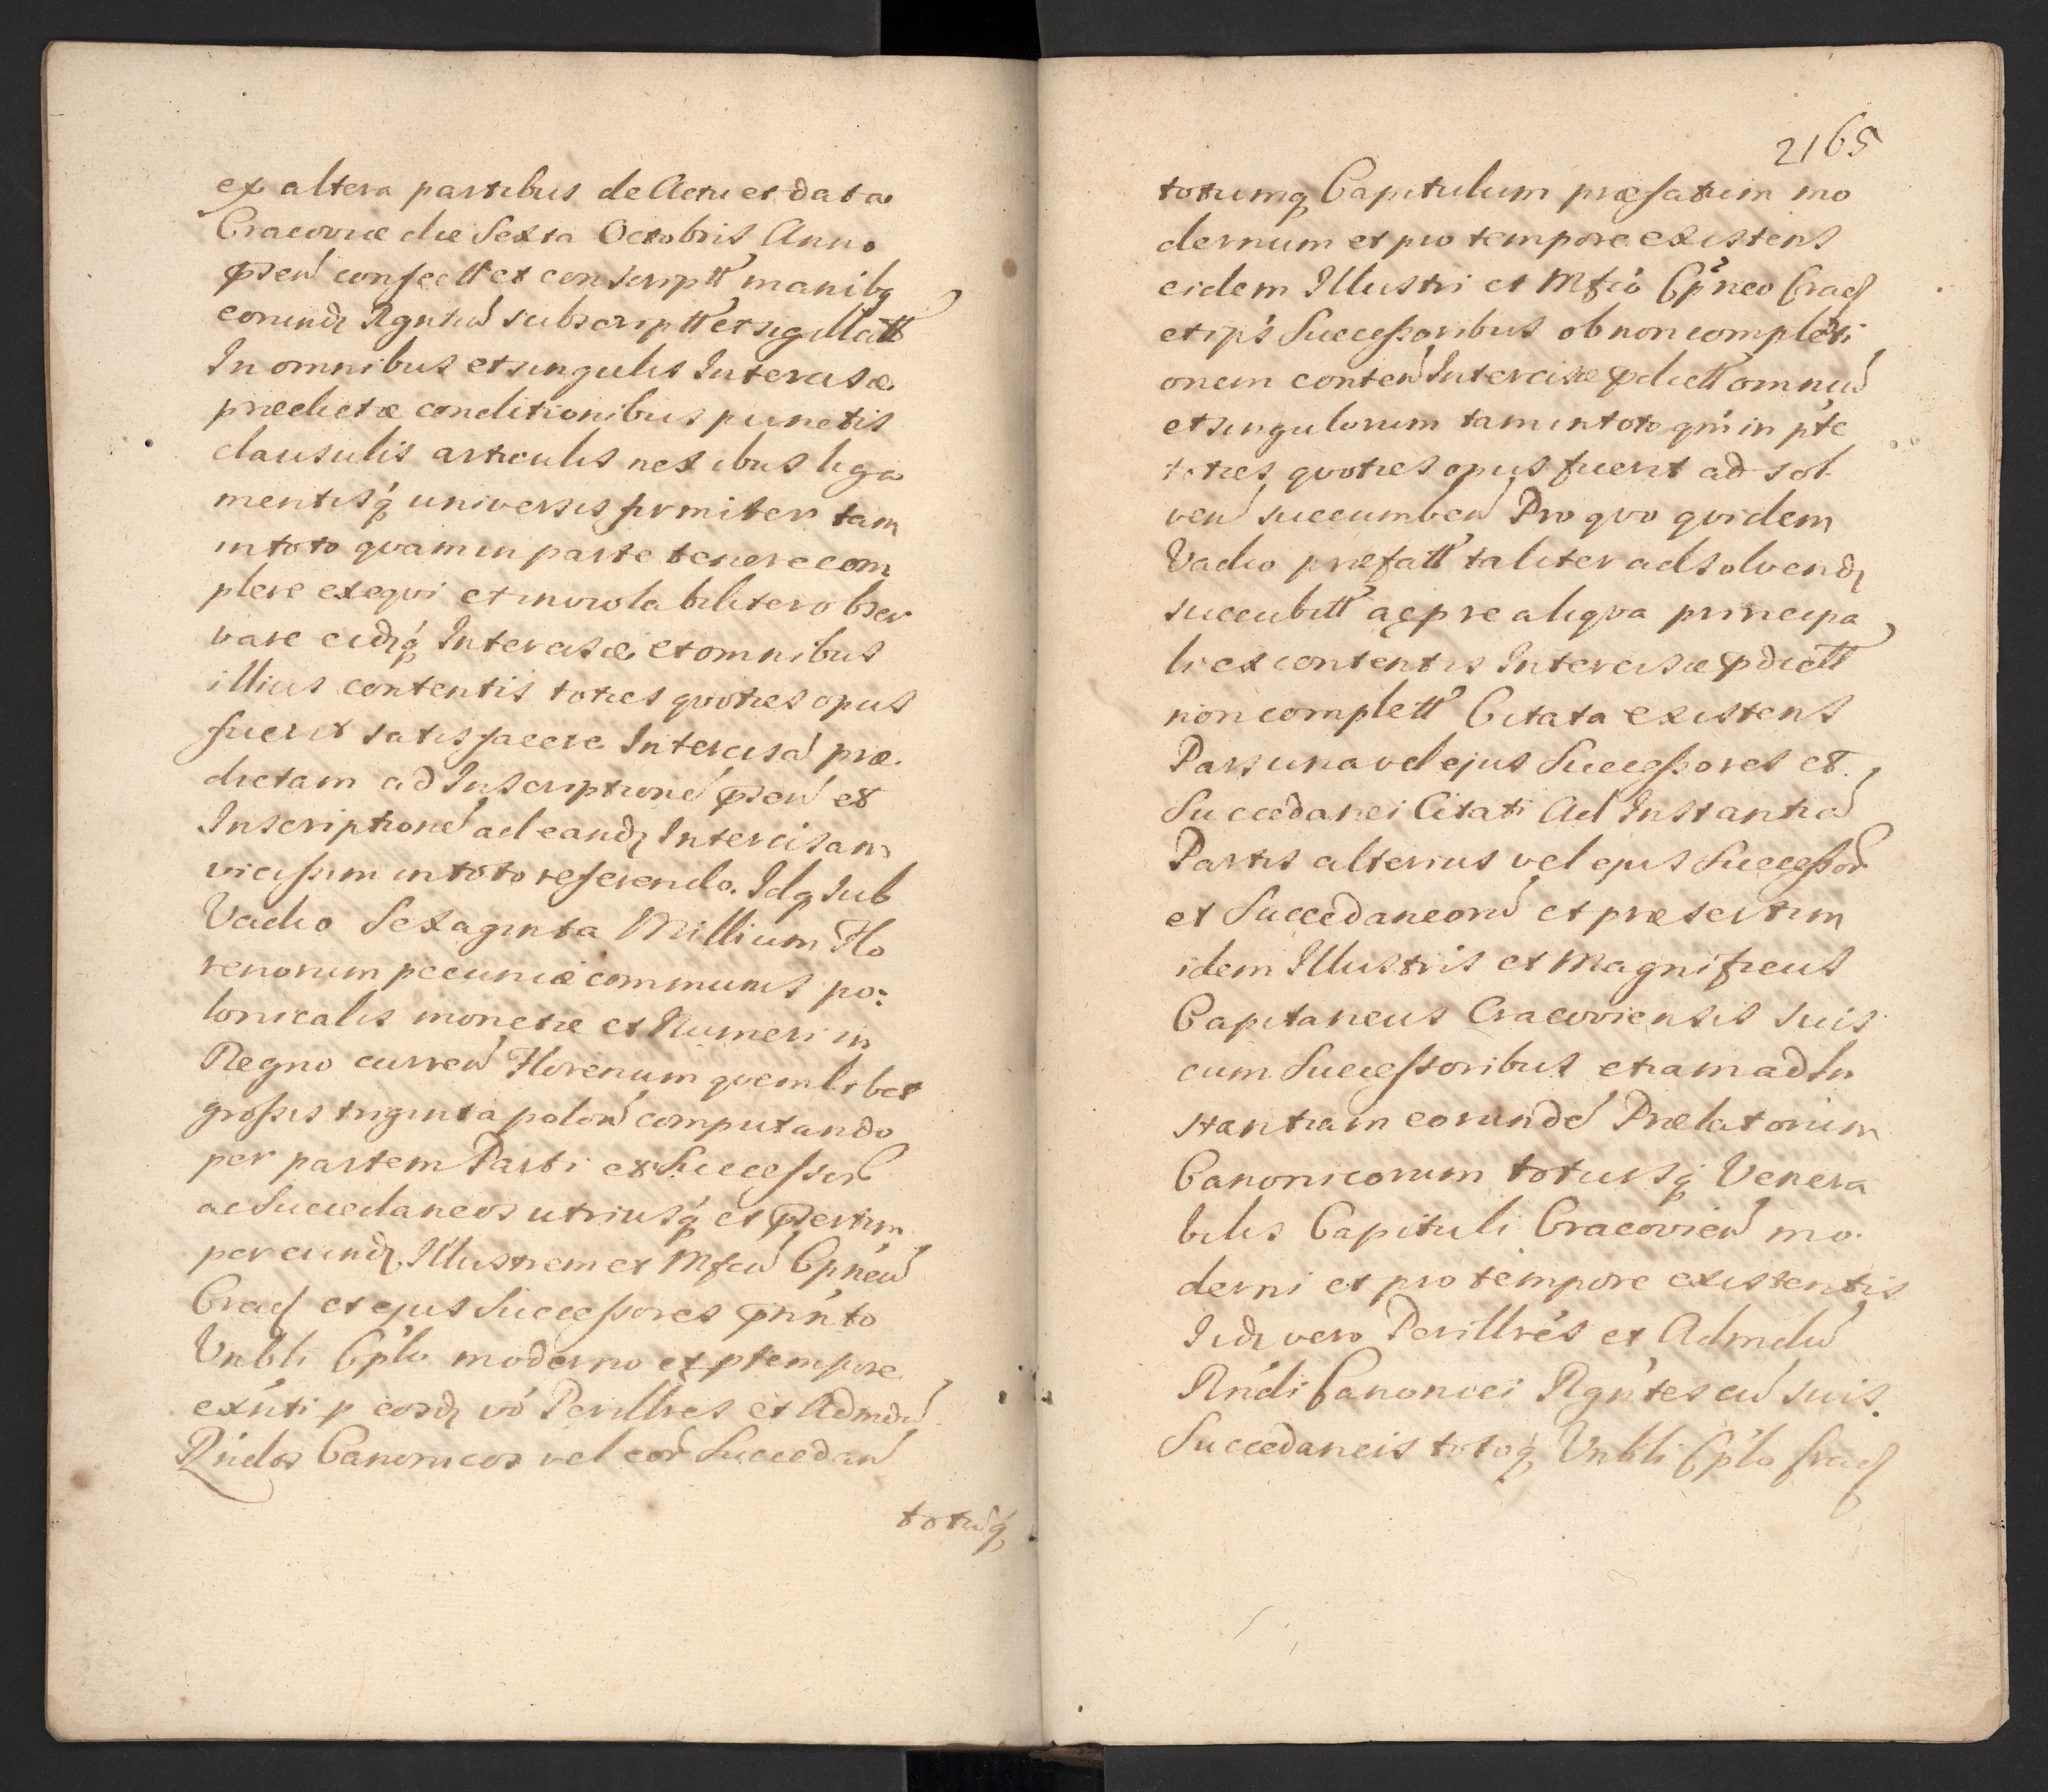 ex altera partibus de Actu et data
Cracoviæ die Sexta Octobris Anno
pñseñ confectt et conscriptt manibq
eorundꝫ Rgntiũ subscriptt et sigillatt
In omnibus et singulis Intercisæ
prædictæ conditionibus punctis
clausulis articulis nexibus liga
mentisq́ universis firmiter tam
in toto quam in parte tenere com
plere exeqvi et inviolabiliter obser
vare eidꝫq́ Intercisæ et omnibus
illius contentis toties qvoties opus
fuerit satisfacere Intercisã præ.
dictam ad Inscriptionẽ pñseñ et
Inscriptionẽ ad eandꝫ Intercisam
vicissim in toto referendo. Idq Sub
Vadio Sexaginta Millium Flo
renorum pecuniæ communis po:
lonicalis monetæ et Numeri in
Regno curreñ Florenum qvemlibet
grossis triginta poloñ computando
per partem Parti et Successor̃
ac Succedaneos utriusq́ et pñsertim
per eundꝫ Illustrem et Mfcũ Cpneũ
Crac̃ et ejus Successores prĩnto
Vnbli Cplo moderno et p tempore
exñti p eosdꝫ vó Perillres et Admdũ
Rñdos Canonicos vel eor̃ Succedañ
totũq́
2165
totumq́ Capitulum præfatum mo
dernum et pro tempore existens
eidem Illustri et Mfcó Cpneo Crac̃
et ips̃ Successoribus ob non completi
onem conteñ Intercisæ pdictt omniũ
et singulorum tam in toto qm̃ in pte
toties qvoties opus fuerit ad sol
veñ succumbeñ Pro qvo qvidem
Vadio præfatt taliter adsolvendꝫ
succubitt ac p re aliqva principa
li ex contentis Intercisæ pdictt
non complett Citata existens
Pars una vel ejus Successores et
Succedanei Citati Ad Instantiã
Partis alterius vel ejus Successor̃
et Succedaneorũ et præsertim
idem Illustris et Magnificus
Capitaneus Cracoviensis suis
cum Successoribus etiam ad In
stantiam eorundẽ Prælatorum
Canonicorum totiusq́ Venera
bilis Capituli Cracovieñ mo.
derni et pro tempore existentis
Iidꝫ vero Perillrés et Admdũ
Rńdi Canonici Rgńtes cũ suis.
Succedaneis totoq́ Vnbli Cplo Crac̃